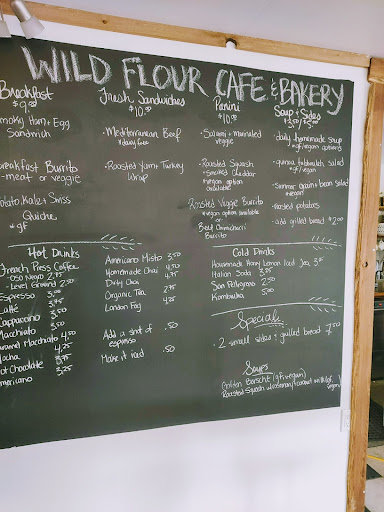 WILD FLOUR CAFE & BAKERY
Breakfast
$9.00
Smoky Ham + Egg
Sandwich
Breakfast Burrito
-meat or veggie
Potato, Kale + Swiss
Quiche
*gf
Fresh Sandwiches
$10.00
-Mediterranean Beef
-Roasted Yam + Turkey
Wrap
Panini
$10.00
-Salami + marinated
veggie
-Roasted Squash
+ Smoked Cheddar
*vegan option
available
Roasted Veggie Burrito
*vegan option available
or
Beef Chimichurri
Burrito
Soup + Sides
-daily homemade soup
*gf/vegan options
-quinoa tabbouleh salad
*gf/vegan
-Summer grain + bean salad
*vegan
-Roasted potatoes
-add grilled bread $2.00
Hot Drinks
French Press Coffee
-Oso Negro 2.75
-Level Ground 2.50
Espresso
Latté
Cappuccino 3.50
Macchiato 3.50
Caramel Macchiato 4.50
Mocha 4.25
Hot Chocolate 3.75
Americano 3.25
Americano Misto 3.50
Homemade Chai 4.50
Dirty Chai
Organic Tea 2.75
London Fog 4.25
Add a shot of .50
espresso
Make it iced .50
Cold Drinks
Housemade Honey Lemon Iced Tea 3.75
Italian Soda 3.25
San Pellegrino 2.50
Kombucha 5.00
Specials
- 2 small sides + grilled bread 7.50
Soups
Golden Borscht (gf, vegan)
Roasted Squash